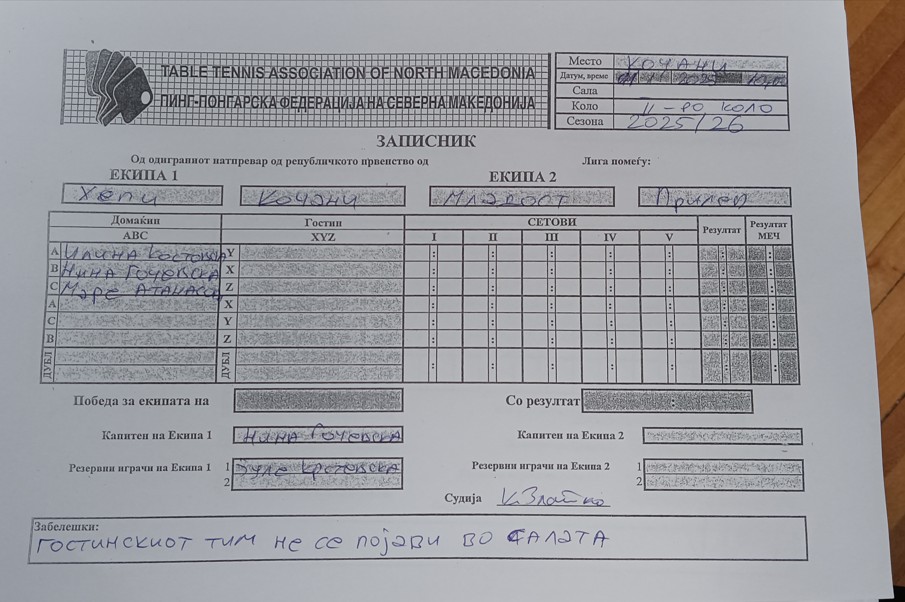 TABLE TENNIS ASSOCIATION OF NORTH MACEDONIA
ПИНГ-ПОНГАРСКА ФЕДЕРАЦИЈА НА СЕВЕРНА МАКЕДОНИЈА
Место КОЧАНИ
Датум, време 2025
Сала
Коло II-РО КОЛО
Сезона 2025/26
ЗАПИСНИК
Од одиграниот натпревар од републичкото првенство од Лига помеѓу:
ЕКИПА 1 ЕКИПА 2
Хепи Кочани Младост Прилеп
Домаќин Гостин СЕТОВИ Резултат Резултат МЕЧ
ABC XYZ I II III IV V
A Илина Костовска Y : : : : : : :
B Нина Гочевска X : : : : : : :
C Маре Атанасов Z : : : : : : :
A X : : : : : : :
C Y : : : : : : :
B Z : : : : : : :
ДУБЛ ДУБЛ : : : : : : :
Победа за екипата на Со резултат :
Капитен на Екипа 1 Нина Гочевска Капитен на Екипа 2
Резервни играчи на Екипа 1 1 Крстовска Резервни играчи на Екипа 2 1
2 2
Судија К.Златко
Забелешки:
ГОСТИНСКИОТ ТИМ НЕ СЕ ПОЈАВИ ВО САЛАТА